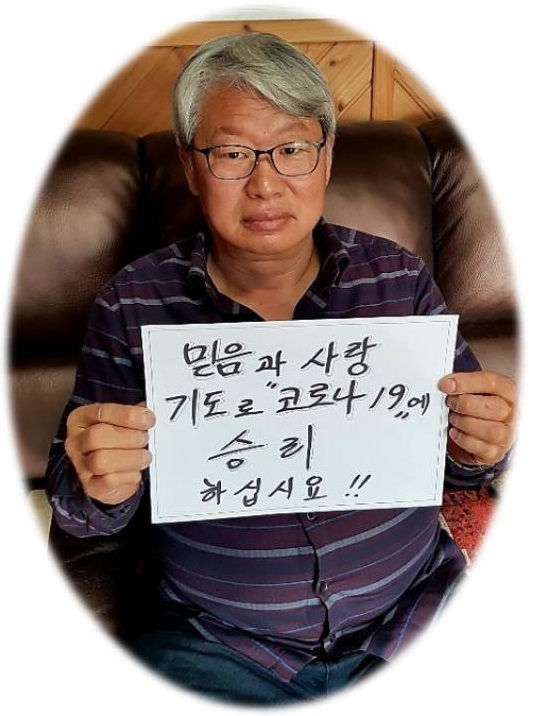 믿음과 사랑
기도로 "코로나 19"에
승리
하십시요 !!